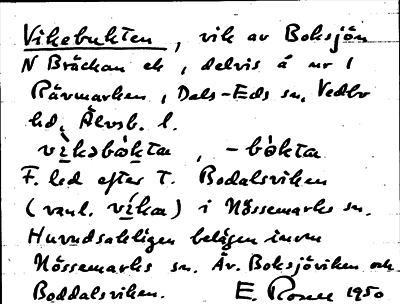 Vikebukten, vik av Boksjön
N Bräckan ek, delvis å nr 1
Rävmarken, Dals-Eds sn, Vedbo
hd, Älvsb. l.
vìkəbòkta, -bòkta
F. led efter T. Bodalsviken
(vanl. víka) i Nössemarks sn.
Huvudsakligen belägen inom
Nössemarks sn. Äv. Boksjöviken och
Boddalsviken. E. Rosen 1950